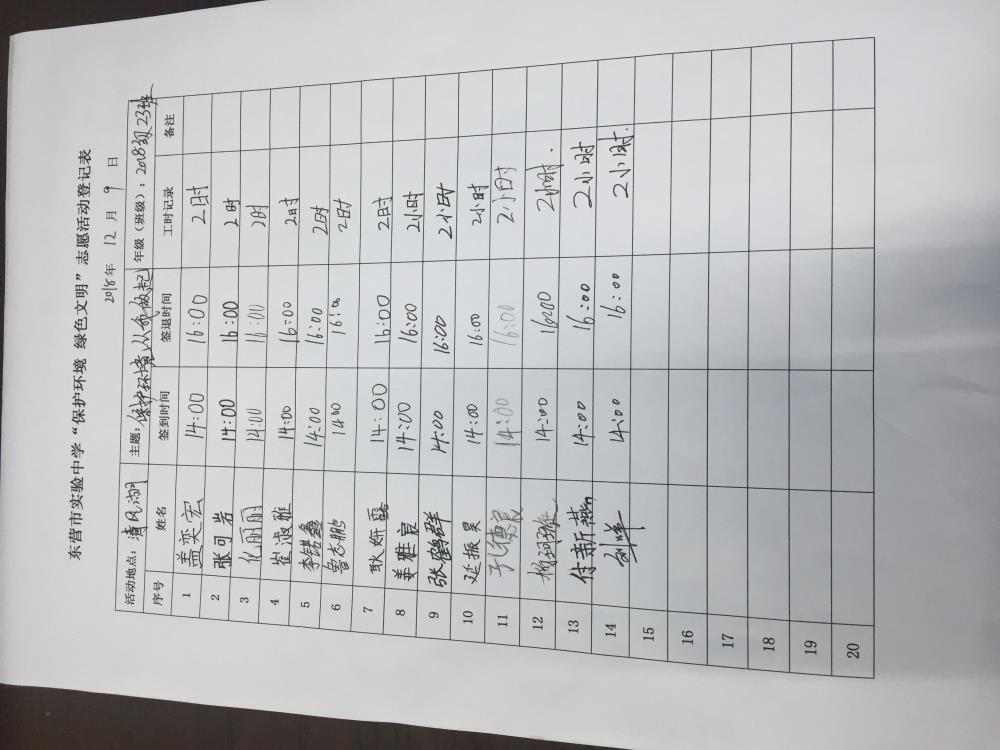 东营市实验中学“保护环境 绿色文明”志愿活动登记表
2018年 12 月 9 日
活动地点：清风湖 主题：保护环境，从我做起 年级（班级）：2018级23班
序号 姓名 签到时间 签退时间 工时记录 备注
1 盖奕宏 14:00 16:00 2时
2 张可岩 14:00 16:00 2时
3 化丽丽 14:00 16:00 2时
4 崔淑雅 14:00 16:00 2时
5 李锴鑫 14:00 16:00 2时
6 鲁志鹏 14:00 16:00 2时
7 耿妍露 14:00 16:00 2时
8 姜胜宸 14:00 16:00 2小时
9 张鹤群 14:00 16:00 2小时
10 延振昊 14:00 16:00 2小时
11 孔德宸 14:00 16:00 2小时
12 14:00 16:00 2小时.
13 付新燕 14:00 16:00 2小时
14 14:00 16:00 2小时.
15
16
17
18
19
20